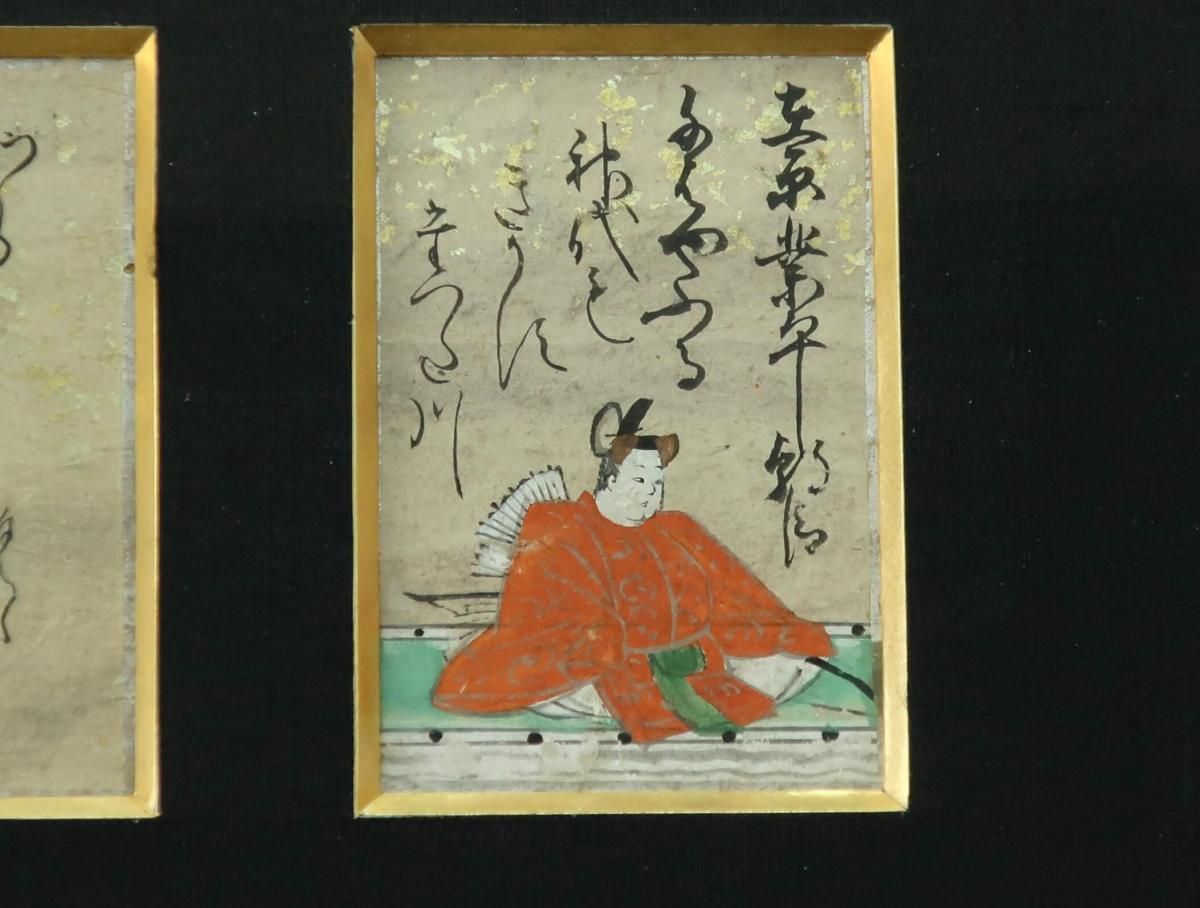 在原業平朝臣
千はやふる
神代も
きかす
たつた川